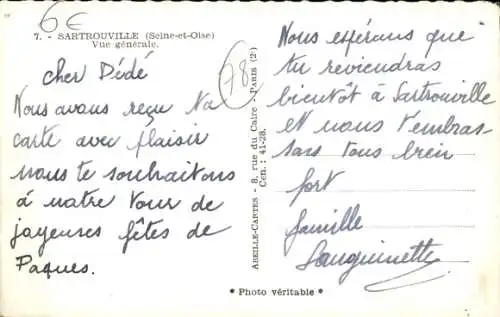 6 €
7. - SARTROUVILLE (Seine-et-Oise)
Vue générale.
Cher Dédé
Nous avons reçu Ta
carte avec plaisir
nous te souhaitons
à notre Tour de
joyeuses fêtes de
Paques.
78
ABEILLE-CARTES - 8, rue du Caire - PARIS (2e)
Cen. 41-28.
Nous espérons que
tu reviendras
bientôt à Sartrouville
et nous t'embras-
sans tous bien
fort
famille
Sanguinette
* Photo véritable *